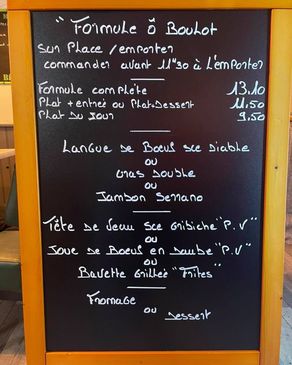 "Formule ô Boulot
Sur Place / emporter
commander avant 11"30 à l'emporter
Formule complète 13.10
Plat + entrée ou Plat.Dessert 11.50
Plat Du Jour 9.50
Langue de Boeuf sce Diable
ou
Gras Double
ou
Jambon Serrano
Tête de Veau sce Gribiche "P.V"
ou
Joue de Boeuf en Daube "P.V"
ou
Bavette Grillée "Frites"
Fromage
ou Dessert